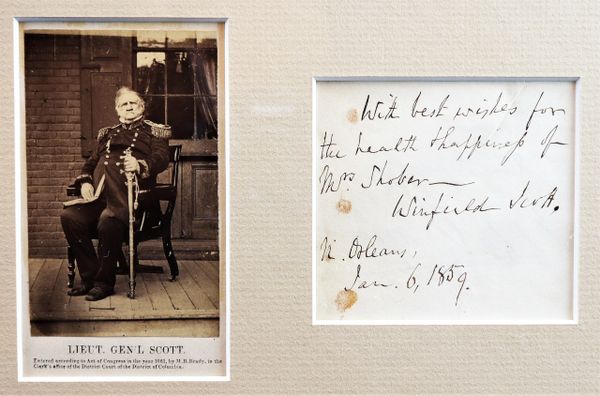 LIEUT. GEN'L SCOTT.
Entered according to Act of Congress in the year 1861, by M.B. Brady, in the
Clerk's office of the District Court of the District of Columbia.
With best wishes for
the health & happiness of
Mrs. Shober
Winfield Scott.
N. Orleans,
Jan. 6, 1859.